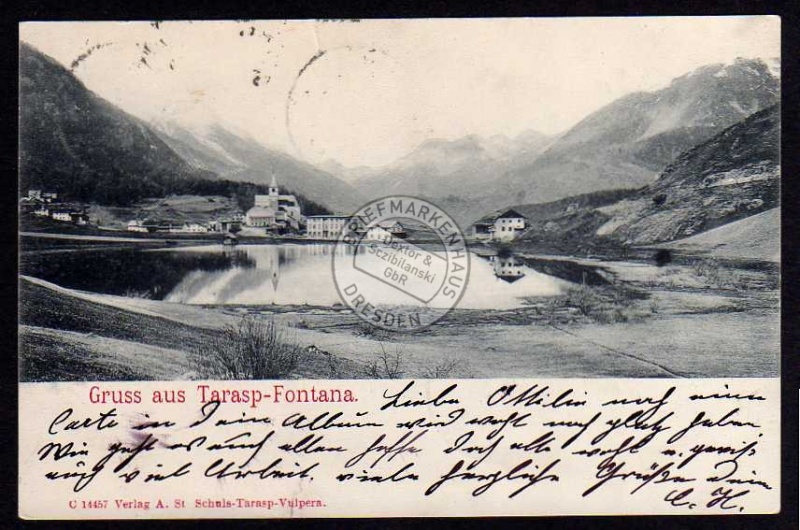 BRIEFMARKENHAUS
Dextor &
Sczibilanski
GbR
DRESDEN
Gruss aus Tarasp-Fontana.
Liebe Ottilie noch eine
Carte in Dein Album wird wohl noch platz haben
Wie geht es auch allen hoffe doch alle wohl u. gewiss
auch viel Arbeit. viele herzliche Grüße Dein
C. H.
C 14457 Verlag A. St Schuls-Tarasp-Vulpera.